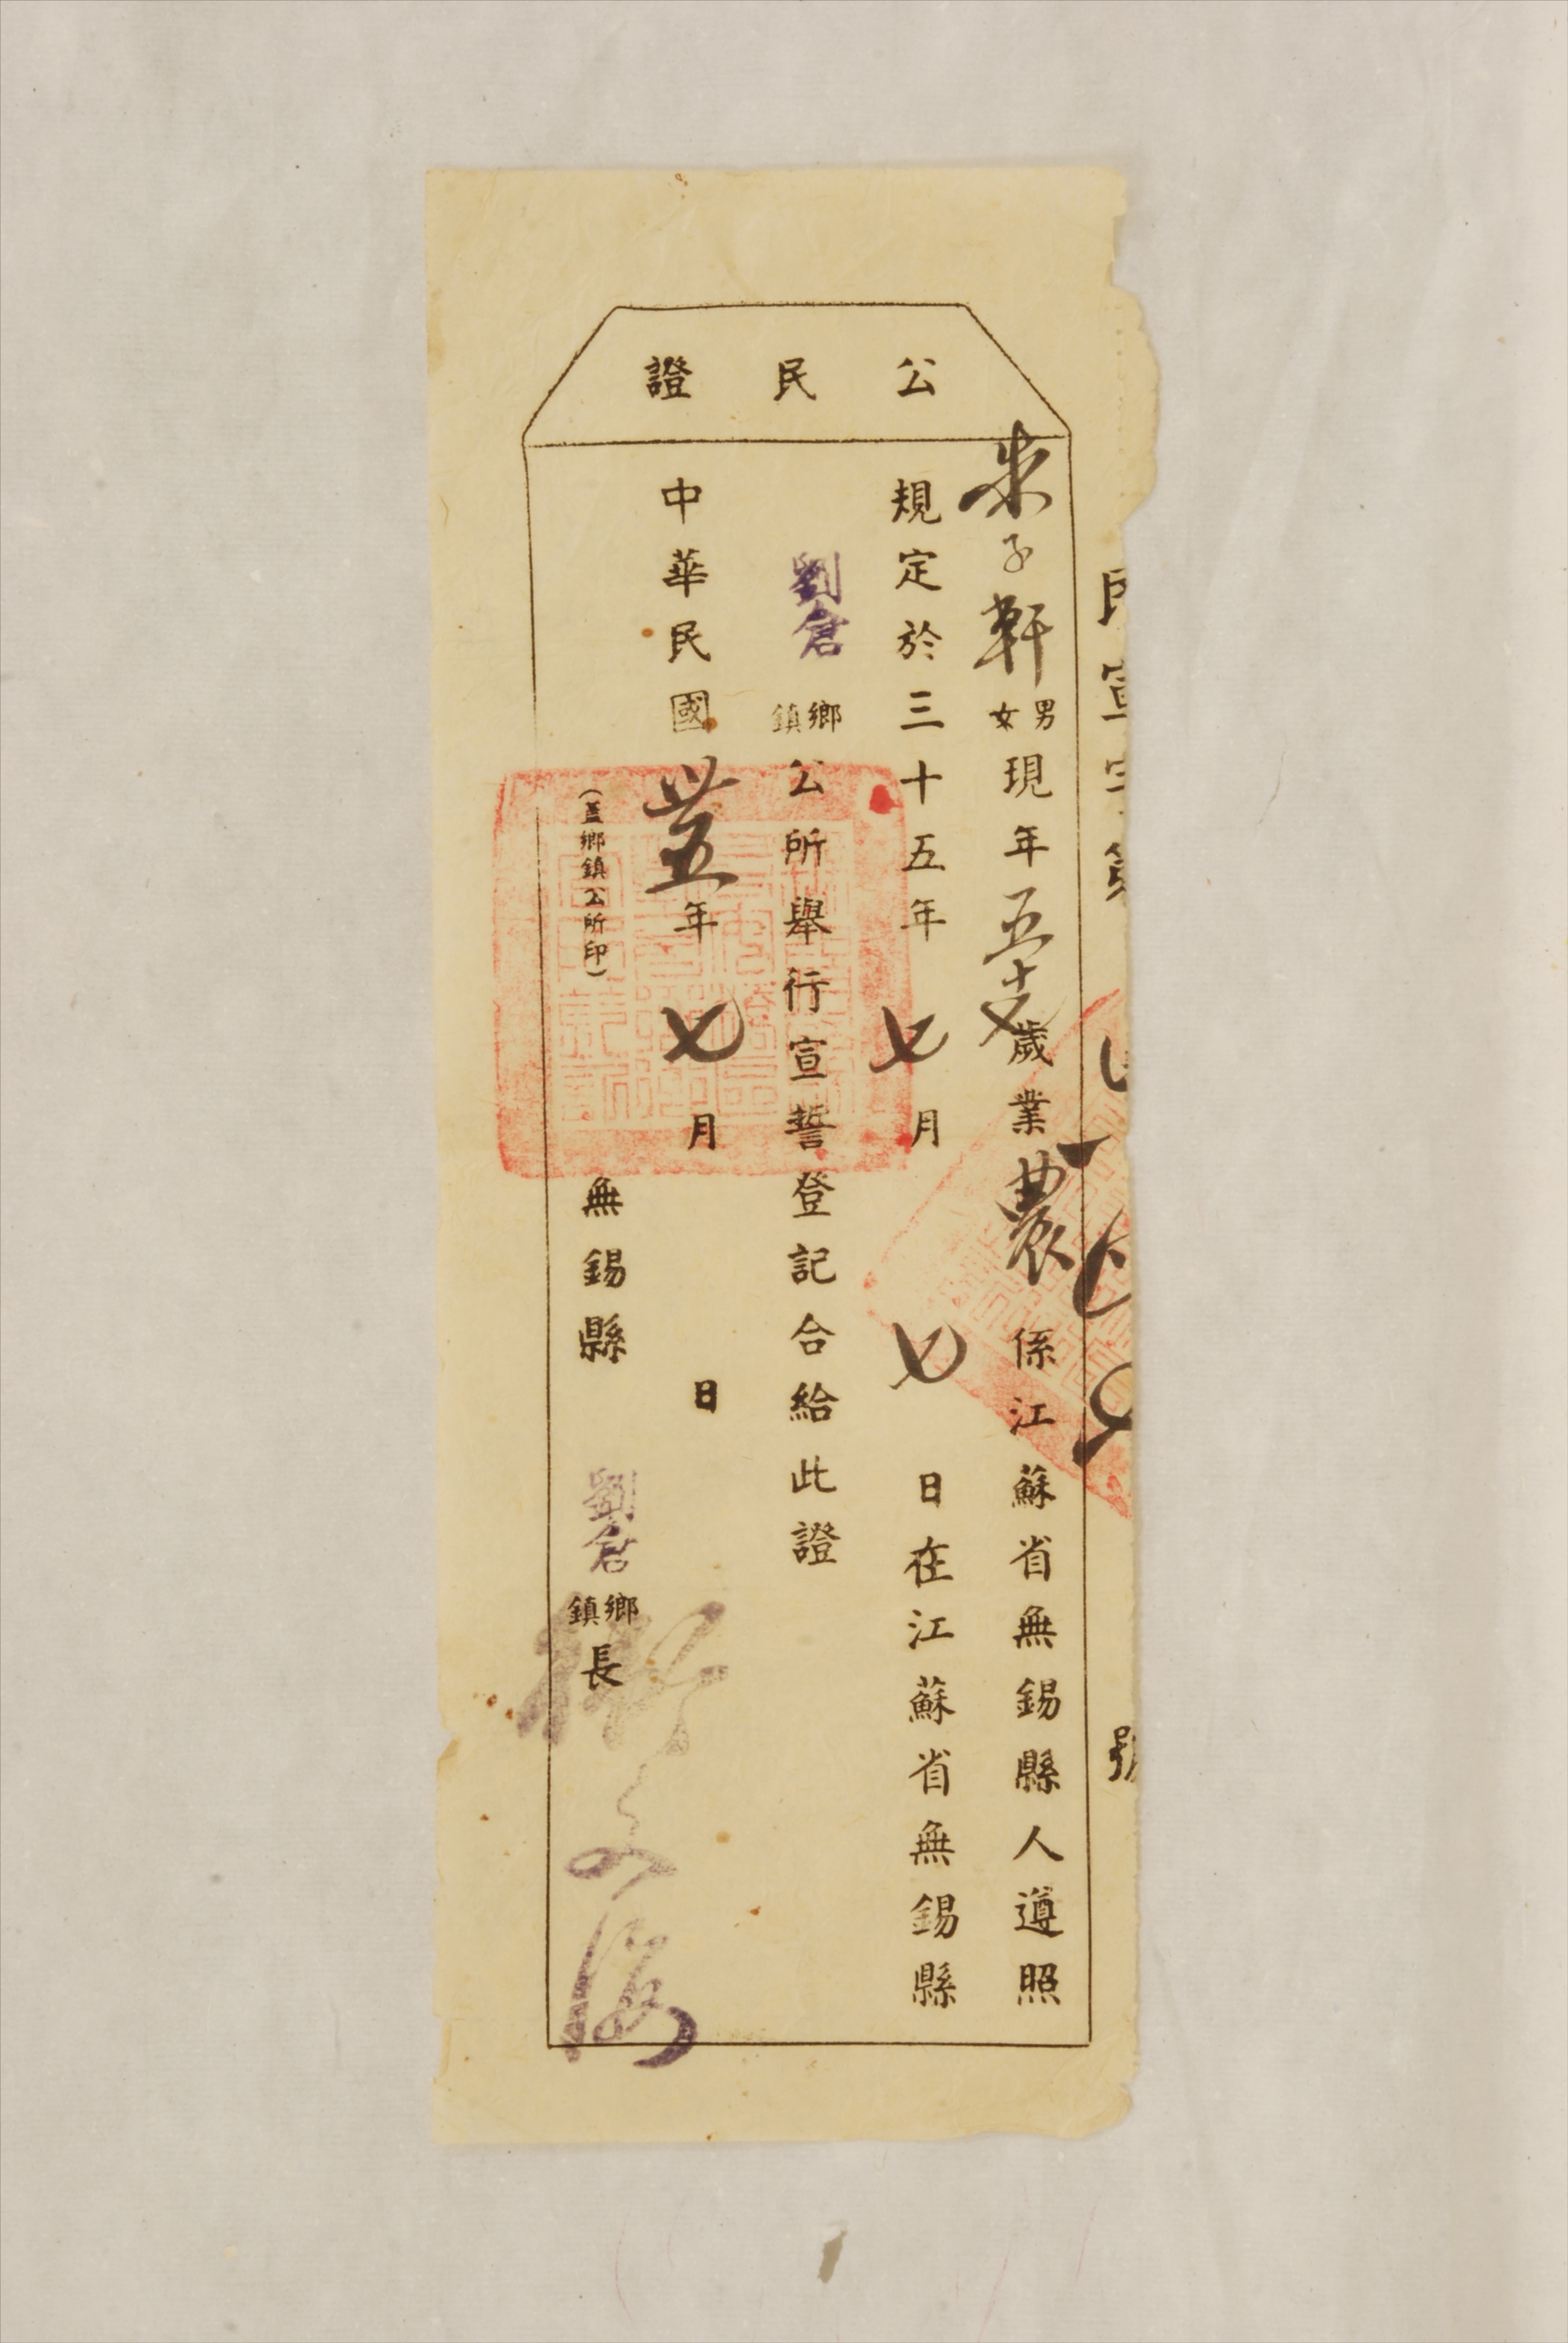 公民證
民宣字第
號
朱子軒 男女 現年五十七歲業農 係江蘇省無錫縣人遵照
規定於三十五年七月七日在江蘇省無錫縣
劉倉 鄉鎮 公所舉行宣誓登記合給此證
中華民國卅五年七月 日
(蓋鄉鎮公所印) 無錫縣 劉倉 鄉鎮 長